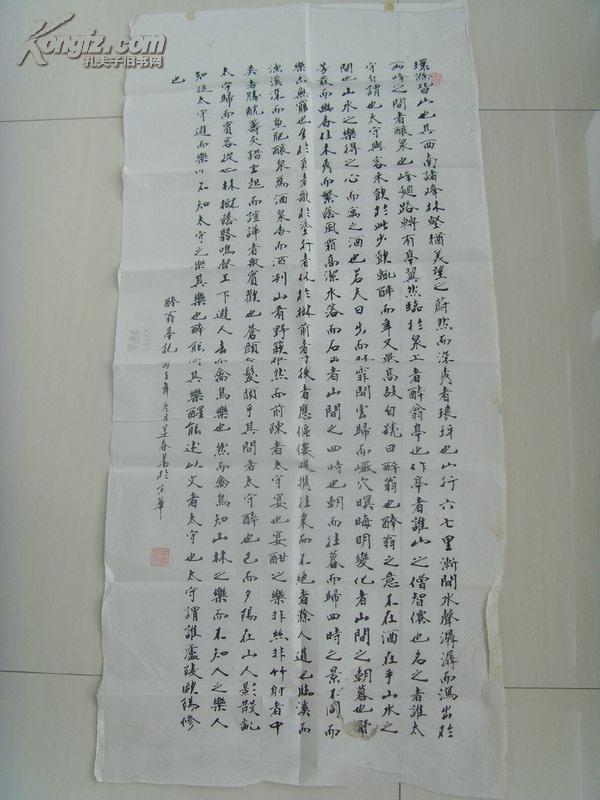 Kongfz.com
孔夫子旧书网
環滁皆山也其西南諸峰林壑猶美望之蔚然而深秀者瑯玡也山行六七里漸聞水聲潺潺而瀉出於
兩峰之間者釀泉也峰迴路轉有亭翼然臨於泉上者醉翁亭也作亭者誰山之僧智僊也名之者誰太
守自謂也太守與客來飲於此少飲輒醉而年又最高故自號曰醉翁也醉翁之意不在酒在乎山水之
間也山水之樂得之心而寓之酒也若夫日出而林霏開雲歸而巖穴暝晦明變化者山間之朝暮也野
芳發而幽香佳木秀而繁蔭風霜高潔水落而石出者山間之四時也朝而往暮而歸四時之景不同而
樂亦無窮也至於負者歌於塗行者休於樹前者呼後者應傴僂提攜往來而不絕者滁人遊也臨溪而
漁溪深而魚肥釀泉為酒泉香而酒洌山肴野蔌然而前陳者太守宴也宴酣之樂非絲非竹射者中
奕者勝觥籌交錯坐起而諠譁者衆賓歡也蒼顏髮頹乎其間者太守醉也已而夕陽在山人影散亂
太守歸而賓客從也林樹蔭翳鳴聲上下遊人去而禽鳥樂也然而禽鳥知山林之樂而不知人之樂人
知從太守遊而樂而不知太守之樂其樂也醉能同其樂醒能述以文者太守也太守謂誰廬陵歐陽修
也
醉翁亭記 年 月 春 於京華